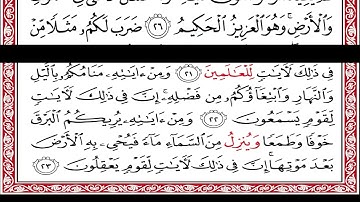 وَالْأَرْضِ وَهُوَ الْعَزِيزُ الْحَكِيمُ ٢٦ ضَرَبَ لَكُم مَّثَلًا مِّنْ
فِي ذَٰلِكَ لَآيَٰتٍ لِّلْعَٰلَمِينَ ٢١ وَمِنْ ءَايَٰتِهِ مَنَامُكُم بِالَّيْلِ
وَالنَّهَارِ وَابْتِغَاؤُكُم مِّن فَضْلِهِ إِنَّ فِي ذَٰلِكَ لَآيَٰتٍ
لِّقَوْمٍ يَسْمَعُونَ ٢٢ وَمِنْ ءَايَٰتِهِ يُرِيكُمُ الْبَرْقَ
خَوْفًا وَطَمَعًا وَيُنْزِلُ مِنَ السَّمَاءِ مَاءً فَيُحْيِ بِهِ الْأَرْضَ
بَعْدَ مَوْتِهَا إِنَّ فِي ذَٰلِكَ لَآيَٰتٍ لِّقَوْمٍ يَعْقِلُونَ ٢٣